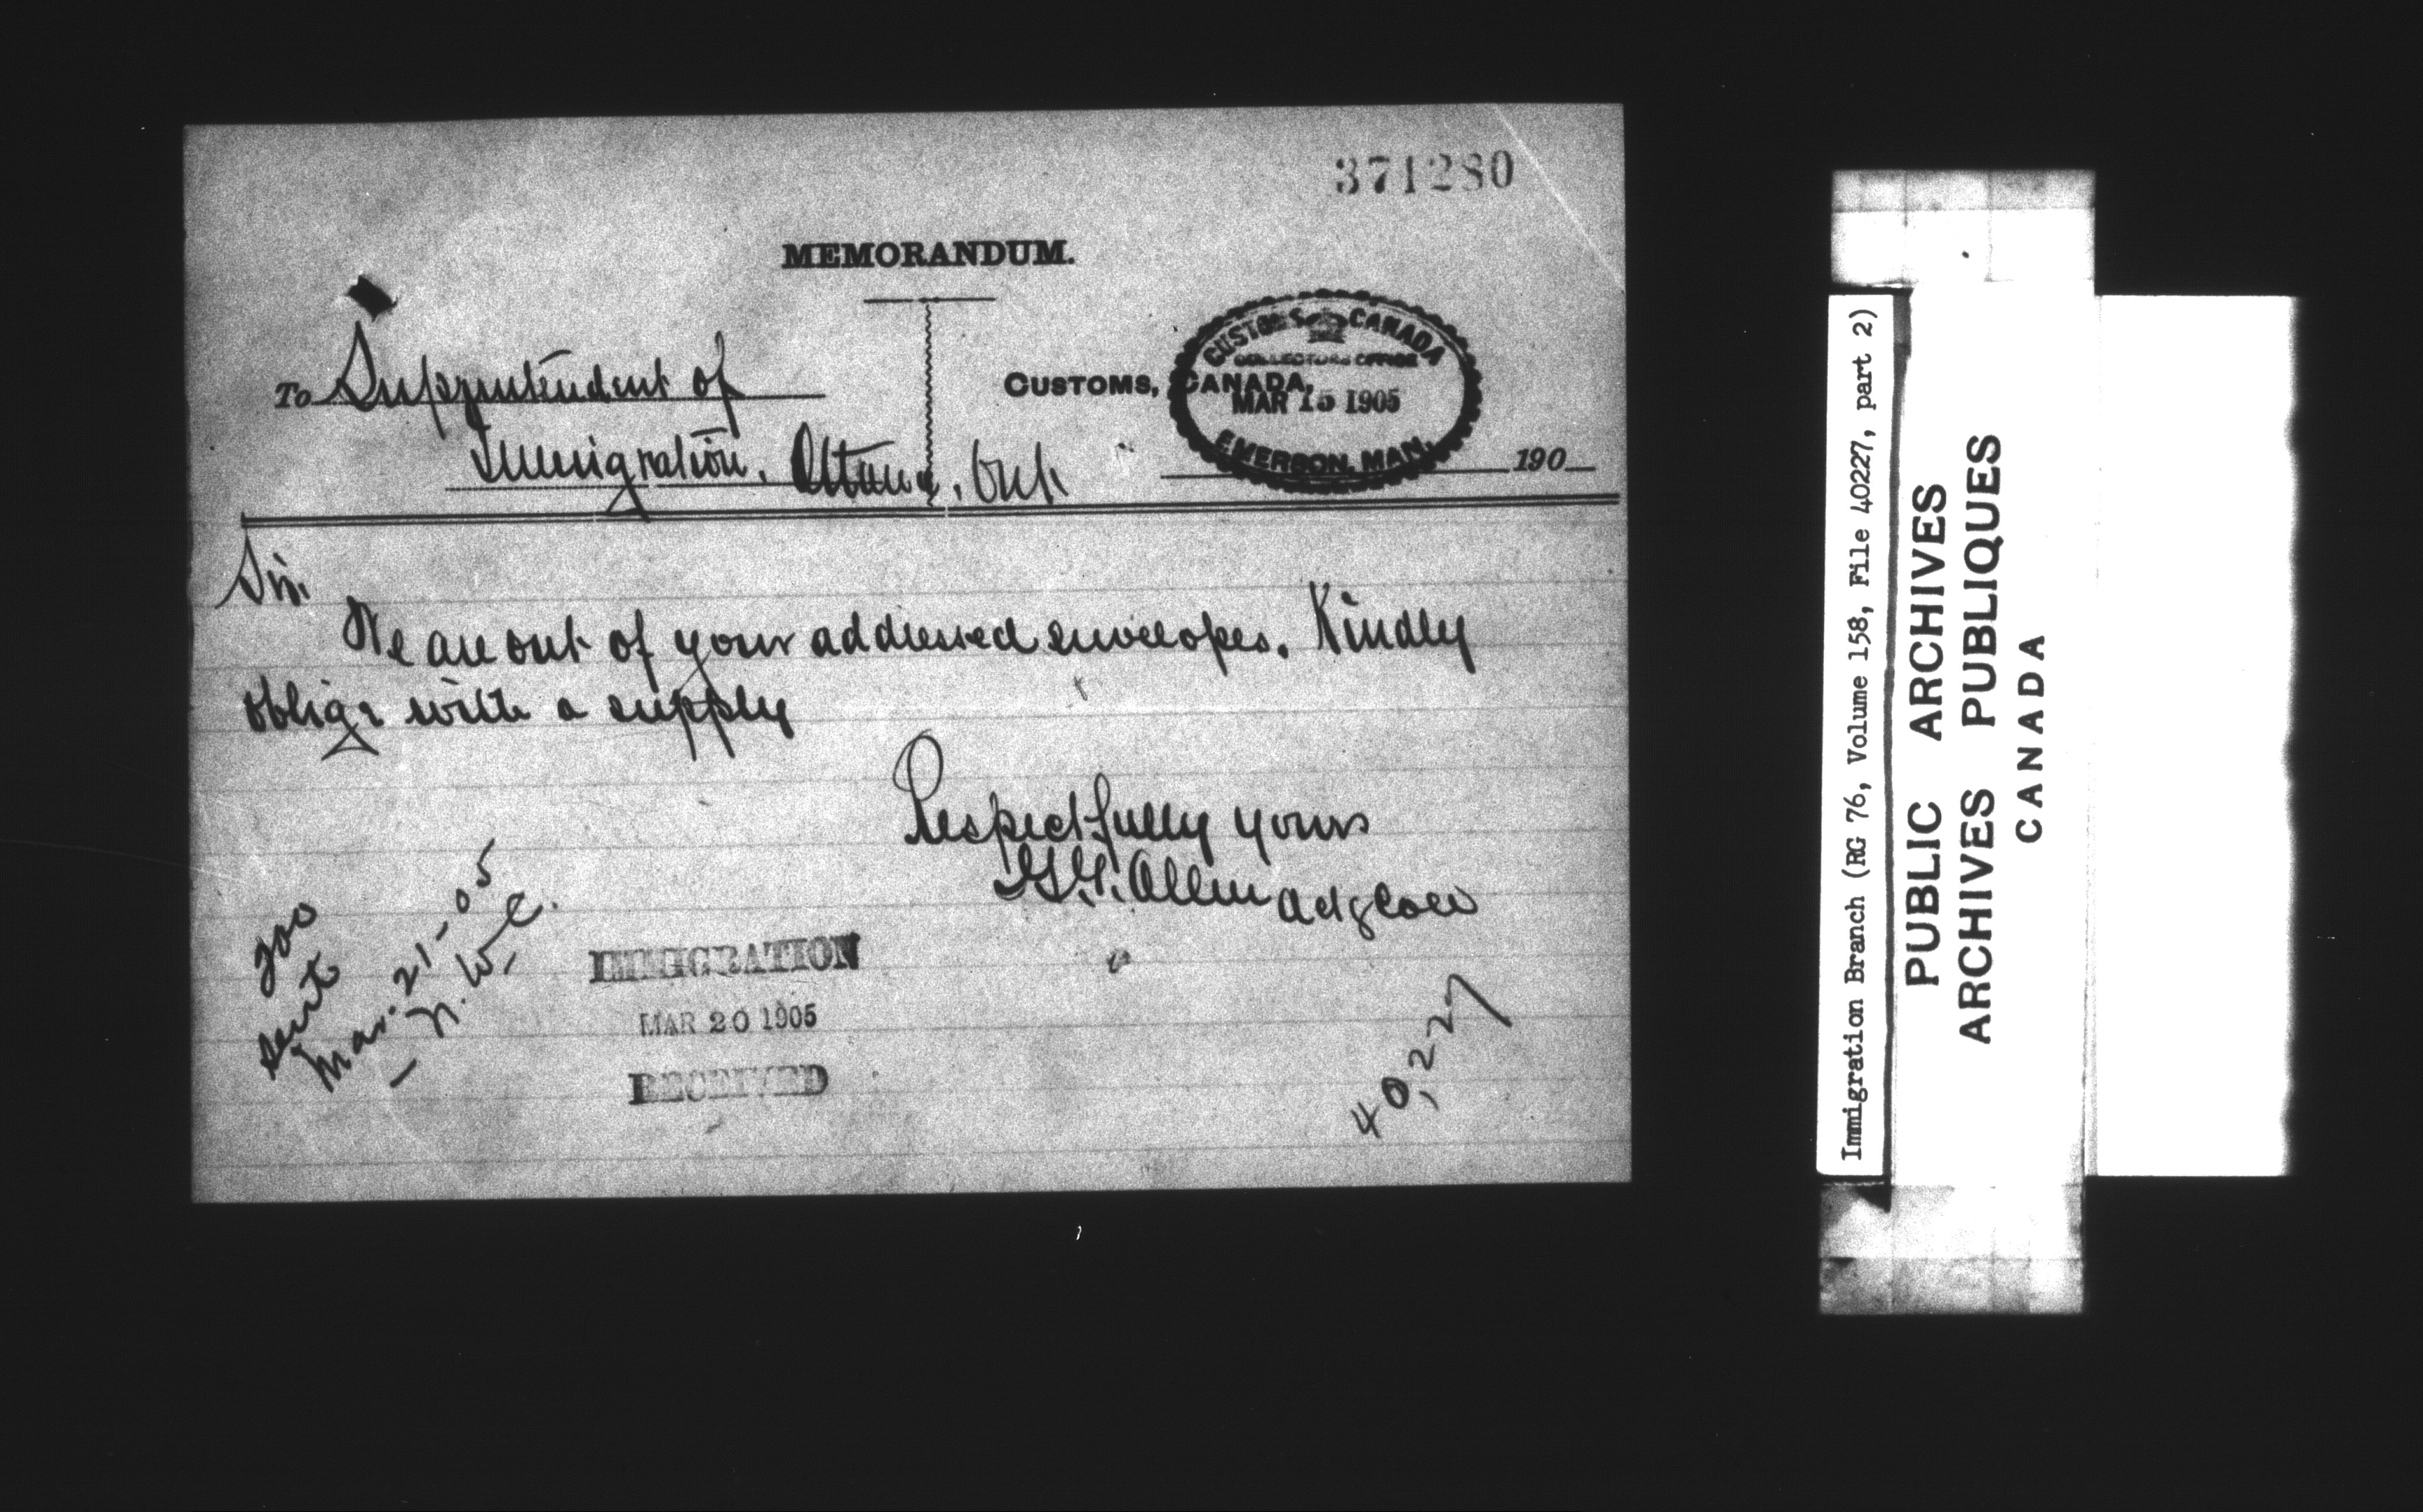 371280
MEMORANDUM.
To Superintendent of
Immigration. Ottawa. Ont.
CUSTOMS, CANADA,
CUSTOMS CANADA
COLLECTORS OFFICE
MAR 15 1905
EMERSON, MAN.
190
Sir.
We are out of your addressed envelopes. Kindly
oblige with a supply
Respectfully yours
Allen
sent
Mar. 21-05
IMMIGRATION
MAR 20 1905
RECEIVED
40,227
Immigration Branch (RG 76, Volume 158, File 40227, part 2)
PUBLIC ARCHIVES
ARCHIVES PUBLIQUES
CANADA